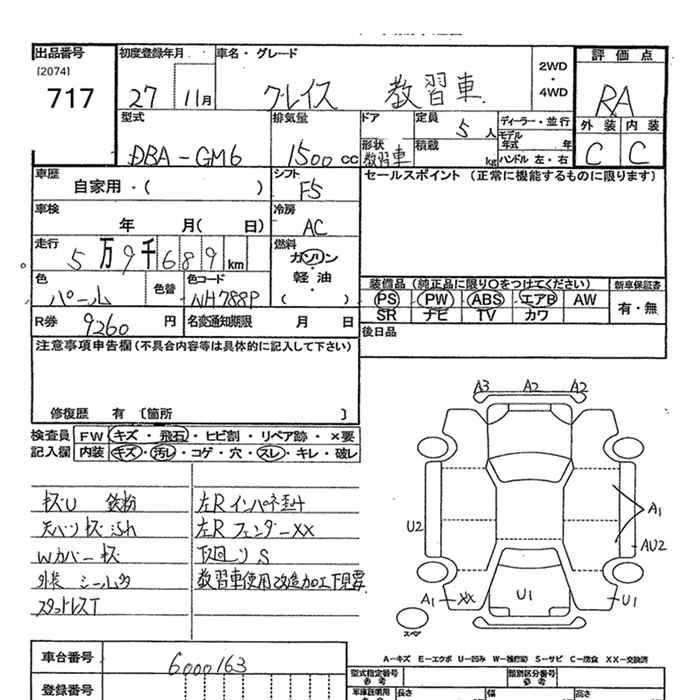 出品番号
[2074]
717
初度登録年月
27 11月
車名・グレード
グレイス 教習車
2WD
・
4WD
評価点
RA
外装 内装
C C
型式
DBA-GM6
排気量
1500 cc
ドア
形状
教習車
定員
5 人
積載
kg
ディーラー・並行
モデル
年式 年
ハンドル 左・右
車歴
自家用・( )
シフト
F5
セールスポイント (正常に機能するものに限ります)
車検
年 月( 日)
冷房
AC
走行
5万9千689 km
燃料
ガソリン
・
軽油
( )
色
パール
色替
色コード
NH788P
装備品 (純正品に限り○をつけてください)
新車保証書
PS PW ABS エアB AW
SR ナビ TV カワ
有・無
R券
9260 円
名変通知期限 月 日
後日品
注意事項申告欄(不具合内容等は具体的に記入して下さい)
修復歴 有 〔箇所 〕
検査員
記入欄
FW キズ・飛石・ヒビ割・リペア跡・×要
内装 キズ・汚レ・コゲ・穴・スレ・キレ・破レ
キズU 鉄粉
天バリ キズ 汚れ
Wカバー キズ
外装 シール多
スタットレスT
左R インパネ
左R フェンダーXX
下廻り S
教習車使用改造加工下見要
A3 A2 A2
U2
A1
AU2
A1 XX
U1
U1
スペア
A-キズ E-エクボ U-凹み W-補修跡 S-サビ C-腐食 XX-交換済
車台番号
6000163
登録番号
型式指定番号
参考
類別区分番号
参考
車庫証明用
長さ
幅
高さ